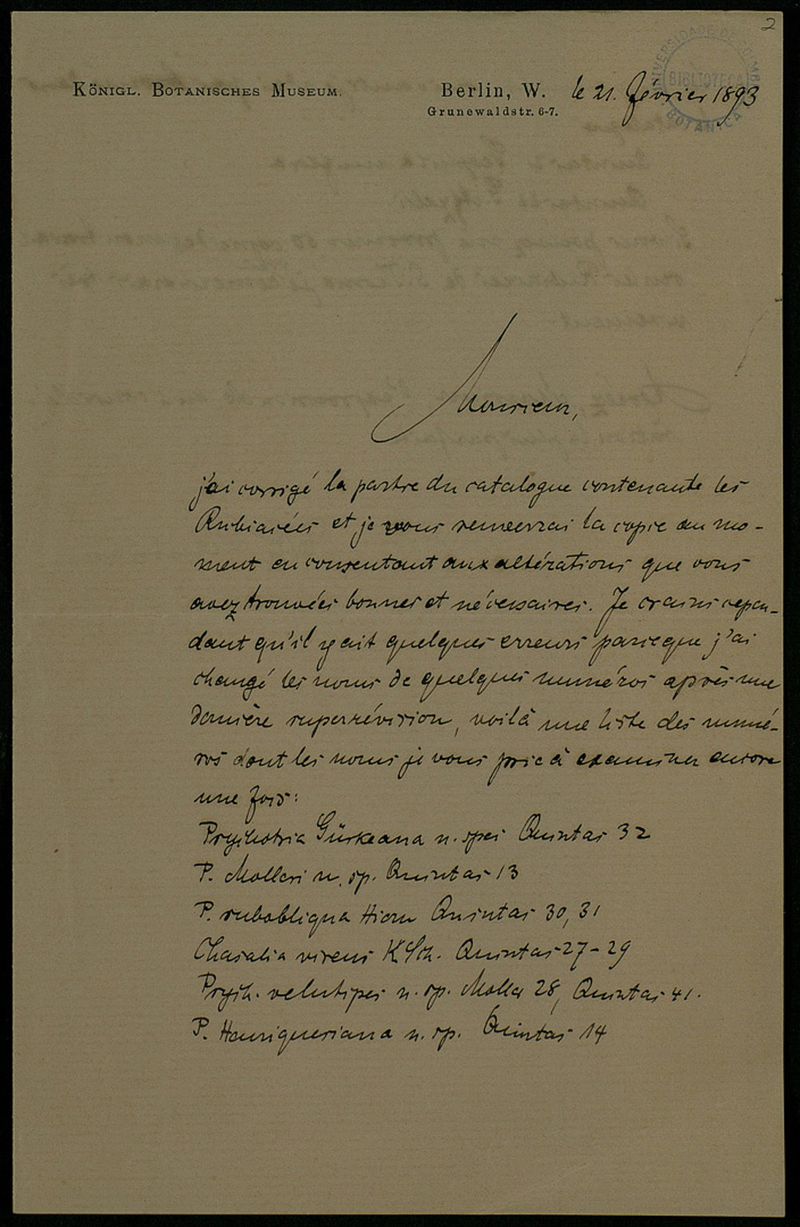 2
UNIVERSIDADE DE COIMBRA
BIBLIOTECA
BOTANICA
KÖNIGL. BOTANISCHES MUSEUM.
Berlin, W. le 21. Février 1893
Grunewaldstr. 6-7.
Monsieur,
j'ai corrigé la partie du catalogue contenante les
Rubiacées et je vous remverrai la copie au mo-
ment en consentant aux altérations que vous
avez trouvées bonnes et nécessaires. Je crains cepen-
dant qu'il y ait quelques erreurs parceque j'ai
changé les noms de quelques numéros après une
dernière superrévision, voilà une liste des numé-
ros dont les noms je vous prie à examiner encore
une fois:
Psychotria Gürkeana n. spec Quintas 32
P. Molleri n. sp. Quintas 13
P. subobliqua Hiern Quintas 30, 31
Chasalia virens KSch. Quintas 27-29
Psych. velutipes n. sp. Moller 28, Quintas 41.
P. Henriquesiana n. sp. Quintas 14